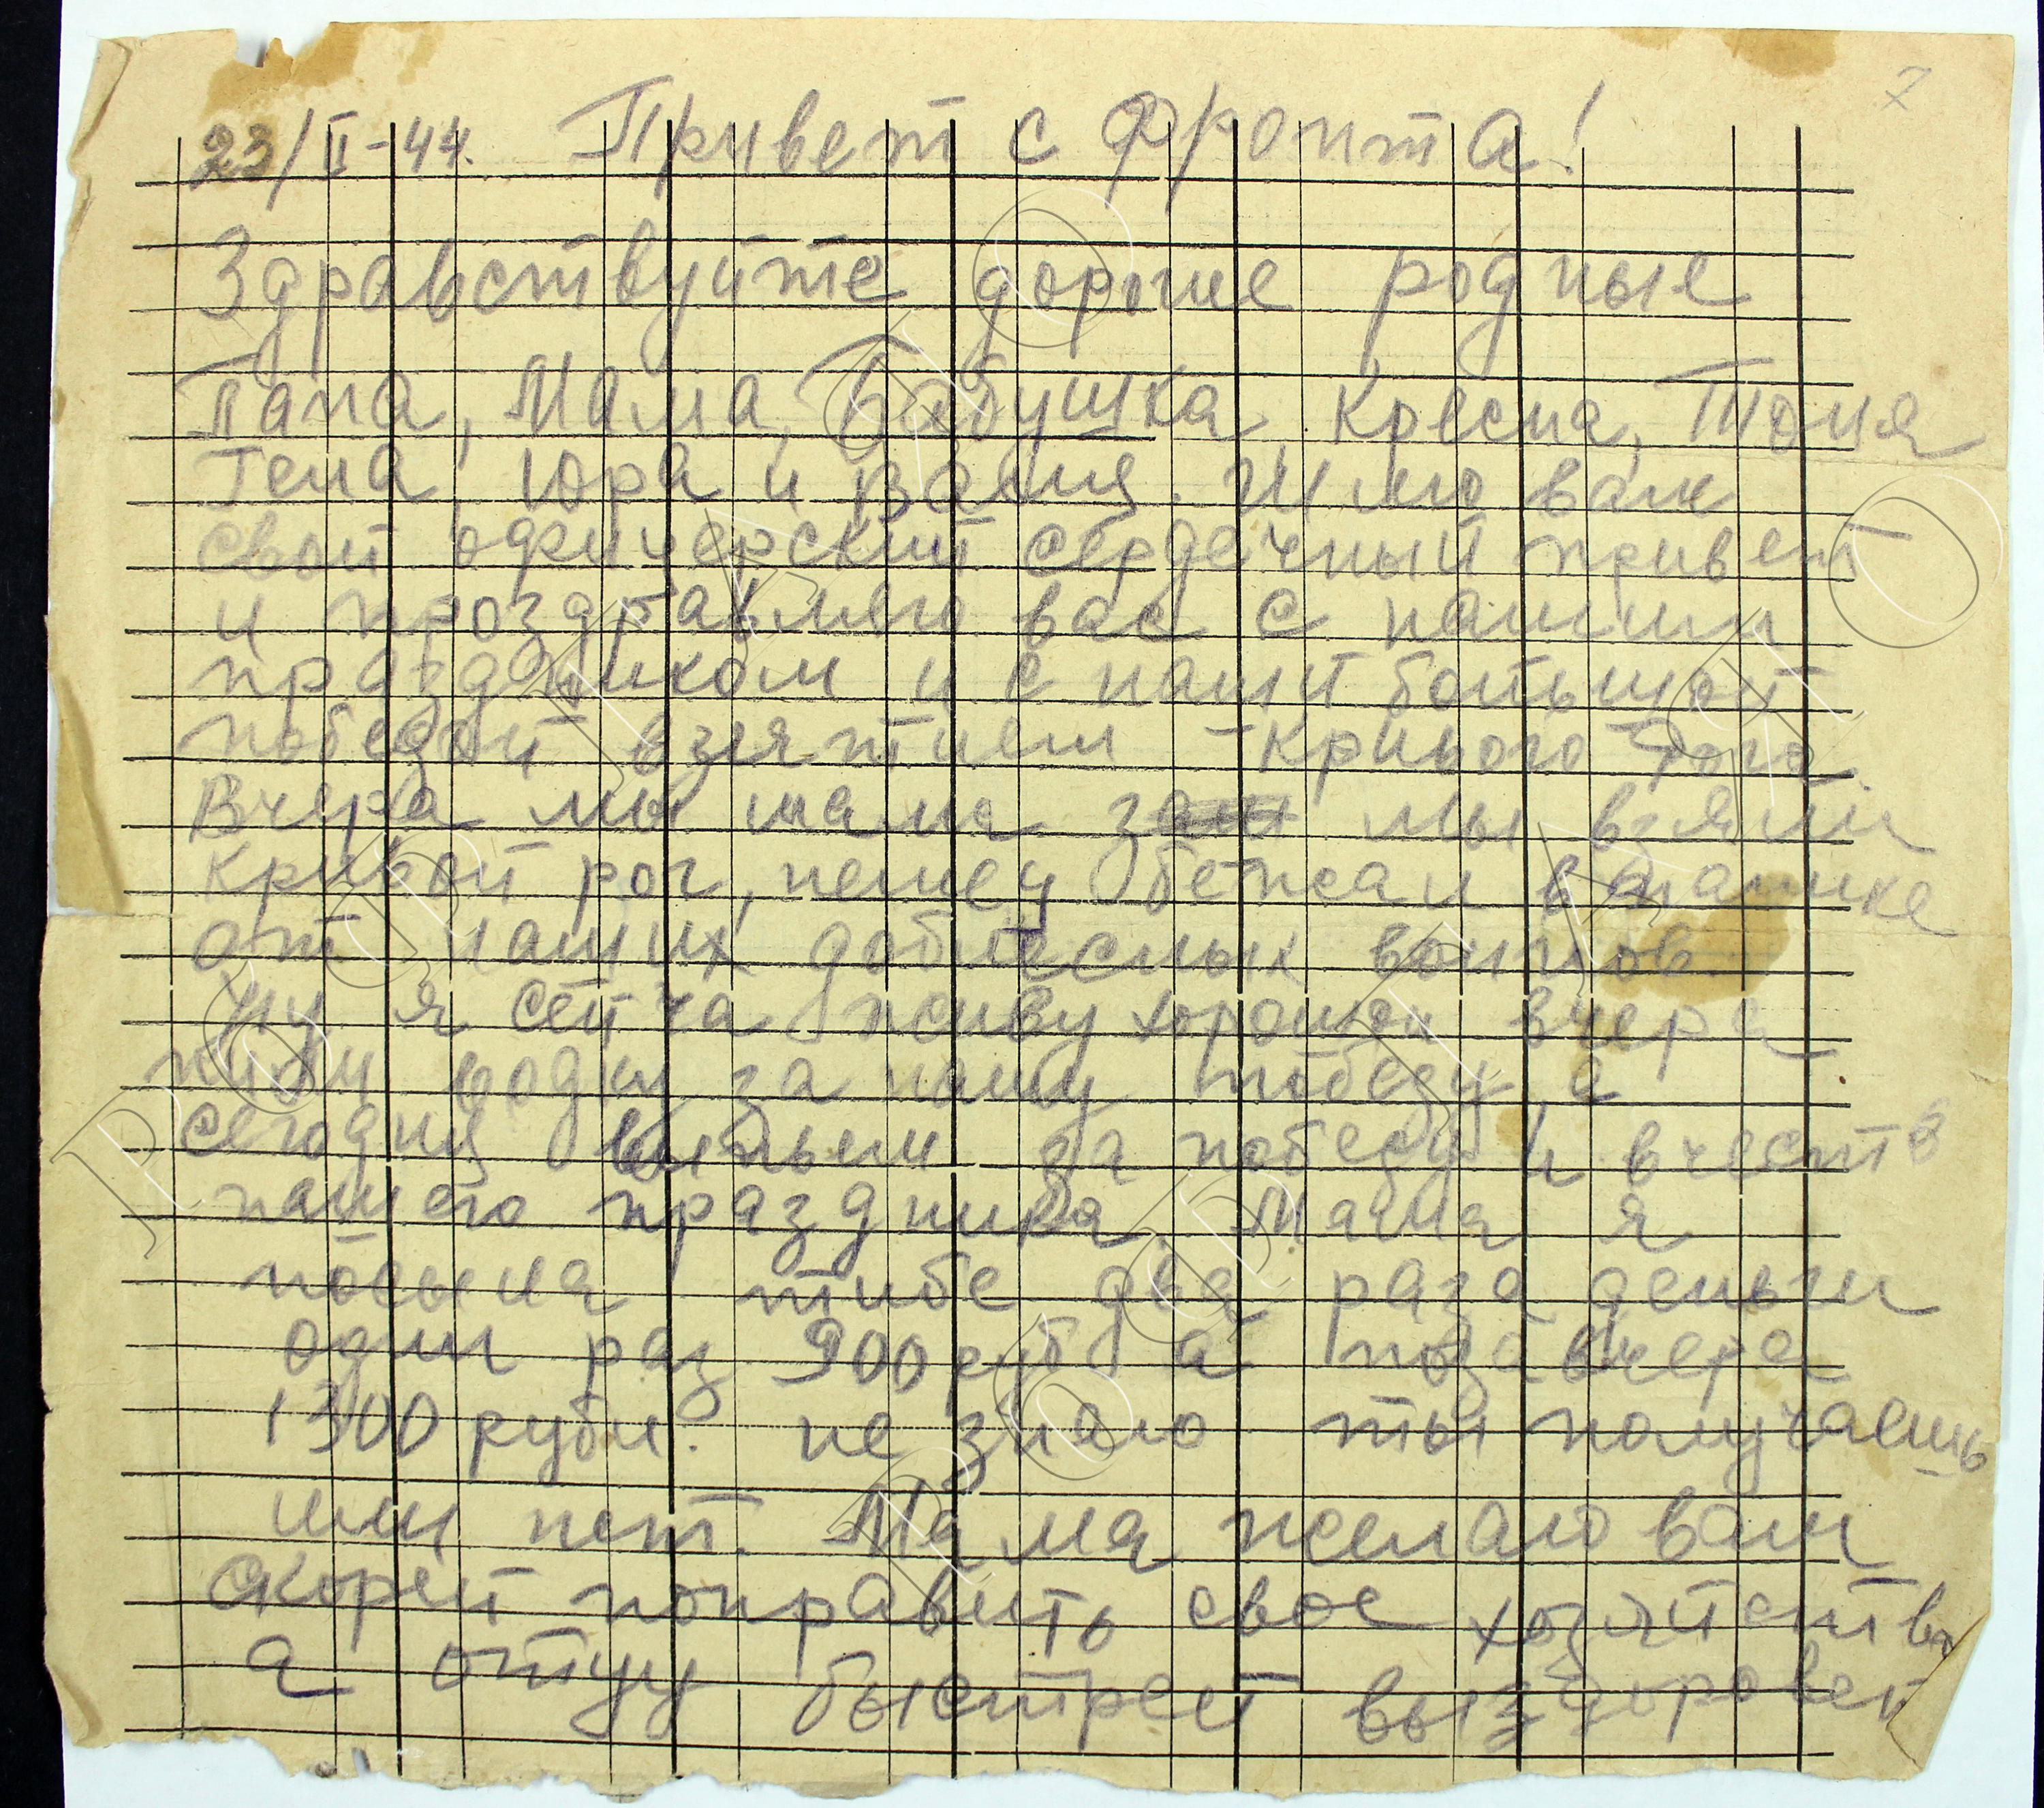 7
23/II-44. Привет с фронта!
Здравствуйте дорогие родные
Папа, Мама, Бабушка, Кресна, Тоня
Гена, Юра и Валя. Шлю вам
свой офицерский сердечный привет
и проздравляю вас с нашим
праздником и с нашей большой
победой взятием - Кривого Рога.
Вчера мы мама мы взяли
Кривой рог, немец бежал в панике
от наших доблесных воинов.
Ну я сейча живу хорошо вчера
пили водку за нашу победу, а
сегодня выпьем за победу и в честь
нашего праздника. Мама я
посылал тибе два раза деньги
один раз 900 руб а позавчера
1300 рубл. не знаю ты получаешь
или нет. Мама желаю вам
скорей поправить свое хозяйство
а отцу быстрей выздоровет